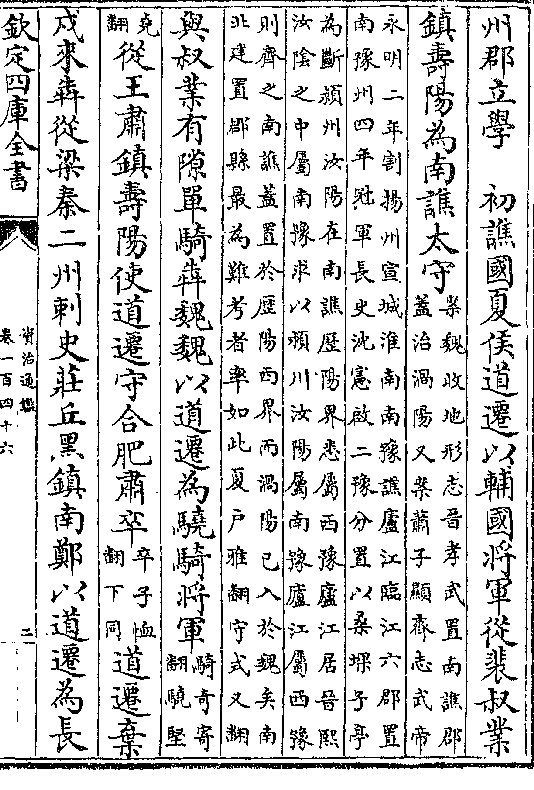 州郡立學　初譙國夏侯道遷以輔國將軍從裴叔業
鎮壽陽為南譙太守
案魏收地形志晉孝武置南譙郡
蓋治渦陽又案蕭子顯齊志武帝
永明二年割揚州宣城淮南南豫譙廬江臨江六郡置
南豫州四年冠軍長史沈憲啟二豫分置以桑堁子亭
為斷潁州汝陽在南譙歷陽界悉屬西豫廬江居晉熙
汝陰之中屬南豫求以潁川汝陽屬南豫廬江屬西豫
則齊之南譙蓋置於歷陽西界而渦陽已入於魏矣南
北建置郡縣最為難考者率如此夏戶雅翻守式又翻
與叔業有隙單騎犇魏魏以道遷為驍騎將軍
騎奇寄
翻驍堅
堯
翻
從王肅鎮壽陽使道遷守合肥肅卒
卒子恤
翻下同
道遷棄
戍來犇從梁秦二州刺史莊丘黑鎮南鄭以道遷為長
欽定四庫全書
資治通鑑
卷一百四十六
二